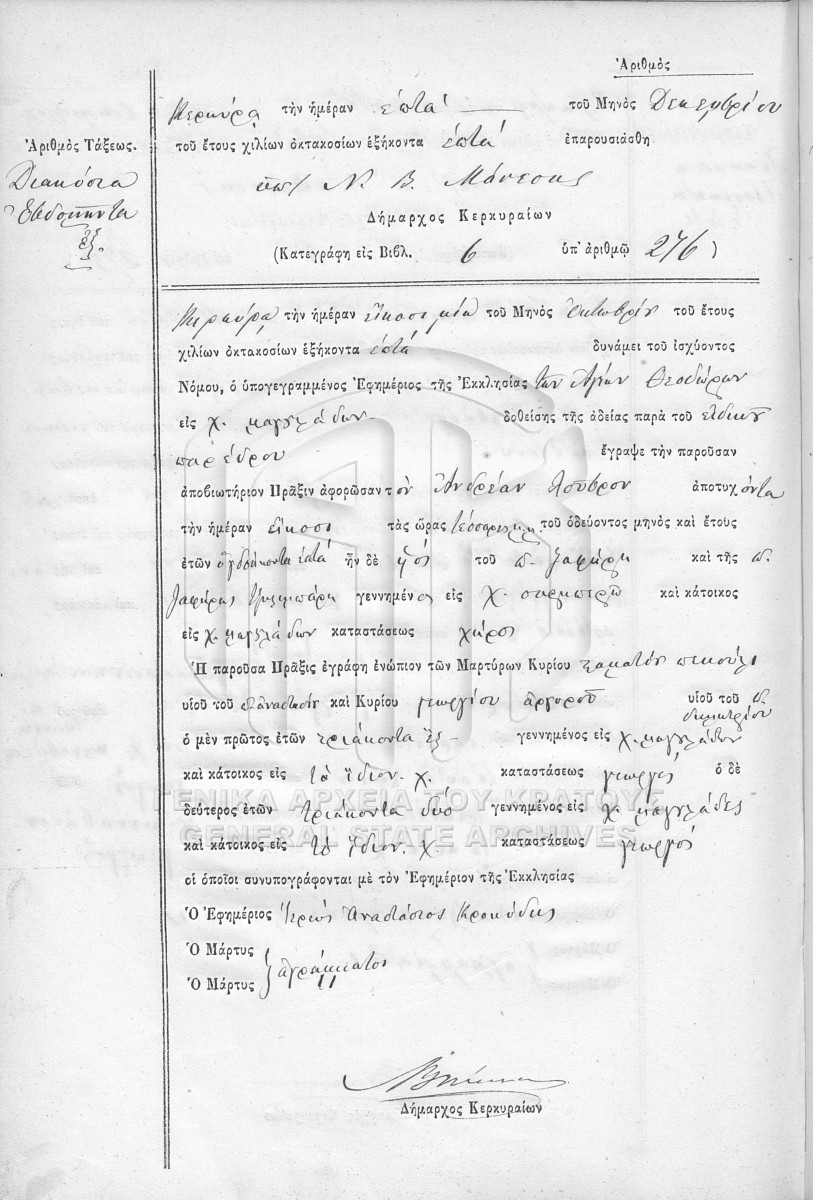 Ἀριθμὸς
Κερκύρᾳ τὴν ἡμέραν ἑπτὰ τοῦ Μηνὸς Δεκεμβρίου
Ἀριθμὸς Τάξεως.
τοῦ ἔτους χιλίων ὀκτακοσίων ἑξήκοντα ἑπτὰ ἐπαρουσιάσθη
Διακόσια
Ἑβδομῆντα
ἕξ.
Ν. Β. Μάνεσης
Δήμαρχος Κερκυραίων
(Κατεγράφη εἰς Βιβλ. 6 ὑπ' ἀριθμῷ 276)
Κερκύρᾳ τὴν ἡμέραν εἴκοσι μία τοῦ Μηνὸς Ὀκτωβρίου τοῦ ἔτους
χιλίων ὀκτακοσίων ἑξήκοντα ἑπτὰ δυνάμει τοῦ ἰσχύοντος
Νόμου, ὁ ὑπογεγραμμένος Ἐφημέριος τῆς Ἐκκλησίας τῶν Ἁγίων Θεοδώρων
εἰς χ. Μαγουλάδων δοθείσης τῆς ἀδείας παρὰ τοῦ εἰδικοῦ
παρέδρου ἔγραψε τὴν παροῦσαν
ἀποβιωτήριον Πρᾶξιν ἀφορῶσαν τὸν Ἀνδρέαν ἀποτυχόντα
τὴν ἡμέραν εἴκοσι τὰς ὥρας τέσσαρες τοῦ ὁδεύοντος μηνὸς καὶ ἔτους
ἐτῶν ὀγδοήκοντα ἑπτὰ ἦν δὲ υἱὸς τοῦ π. Ζαφύρη καὶ τῆς π.
Ζαφύρως γεννημένος εἰς χ. καὶ κάτοικος
εἰς χ. Μαγουλάδων καταστάσεως χῆρος
Ἡ παροῦσα Πρᾶξις ἐγράφη ἐνώπιον τῶν Μαρτύρων Κυρίου Σταματίου
υἱοῦ τοῦ Ἀναστασίου καὶ Κυρίου Γεωργίου Ἀργυροῦ υἱοῦ τοῦ π. Δημητρίου
ὁ μὲν πρῶτος ἐτῶν τριάκοντα ἕξ γεννημένος εἰς χ. Μαγουλάδων
καὶ κάτοικος εἰς τὸ ἴδιον χ. καταστάσεως γεωργός ὁ δὲ
δεύτερος ἐτῶν τριάκοντα δύο γεννημένος εἰς χ. Μαγουλάδες
καὶ κάτοικος εἰς τὸ ἴδιον χ. καταστάσεως γεωργός
οἱ ὁποῖοι συνυπογράφονται μὲ τὸν Ἐφημέριον τῆς Ἐκκλησίας
Ὁ Ἐφημέριος Ἱερεὺς Ἀναστάσιος
Ὁ Μάρτυς
ἀγράμματοι
Ὁ Μάρτυς
Δήμαρχος Κερκυραίων
ΓΕΝΙΚΑ ΑΡΧΕΙΑ ΤΟΥ ΚΡΑΤΟΥΣ
GENERAL STATE ARCHIVES